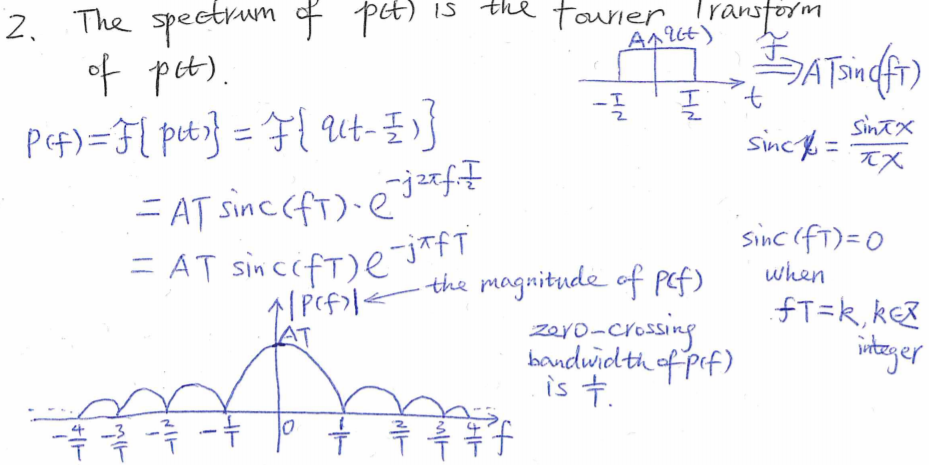 2. The spectrum of p(t) is the Fourier Transform
of p(t).
A q(t)
-T/2 T/2 t
F ⟹ AT sinc(fT)
P(f) = F{p(t)} = F{q(t-T/2)}
sinc x = sinπx/πx
= AT sinc(fT)·e^{-j2πf·T/2}
= AT sinc(fT) e^{-jπfT}
sinc(fT)=0
when
fT=k, k∈Z
integer
|P(f)| ← the magnitude of P(f)
AT
zero-crossing
bandwidth of P(f)
is 1/T.
-4/T -3/T -2/T -1/T 0 1/T 2/T 3/T 4/T f